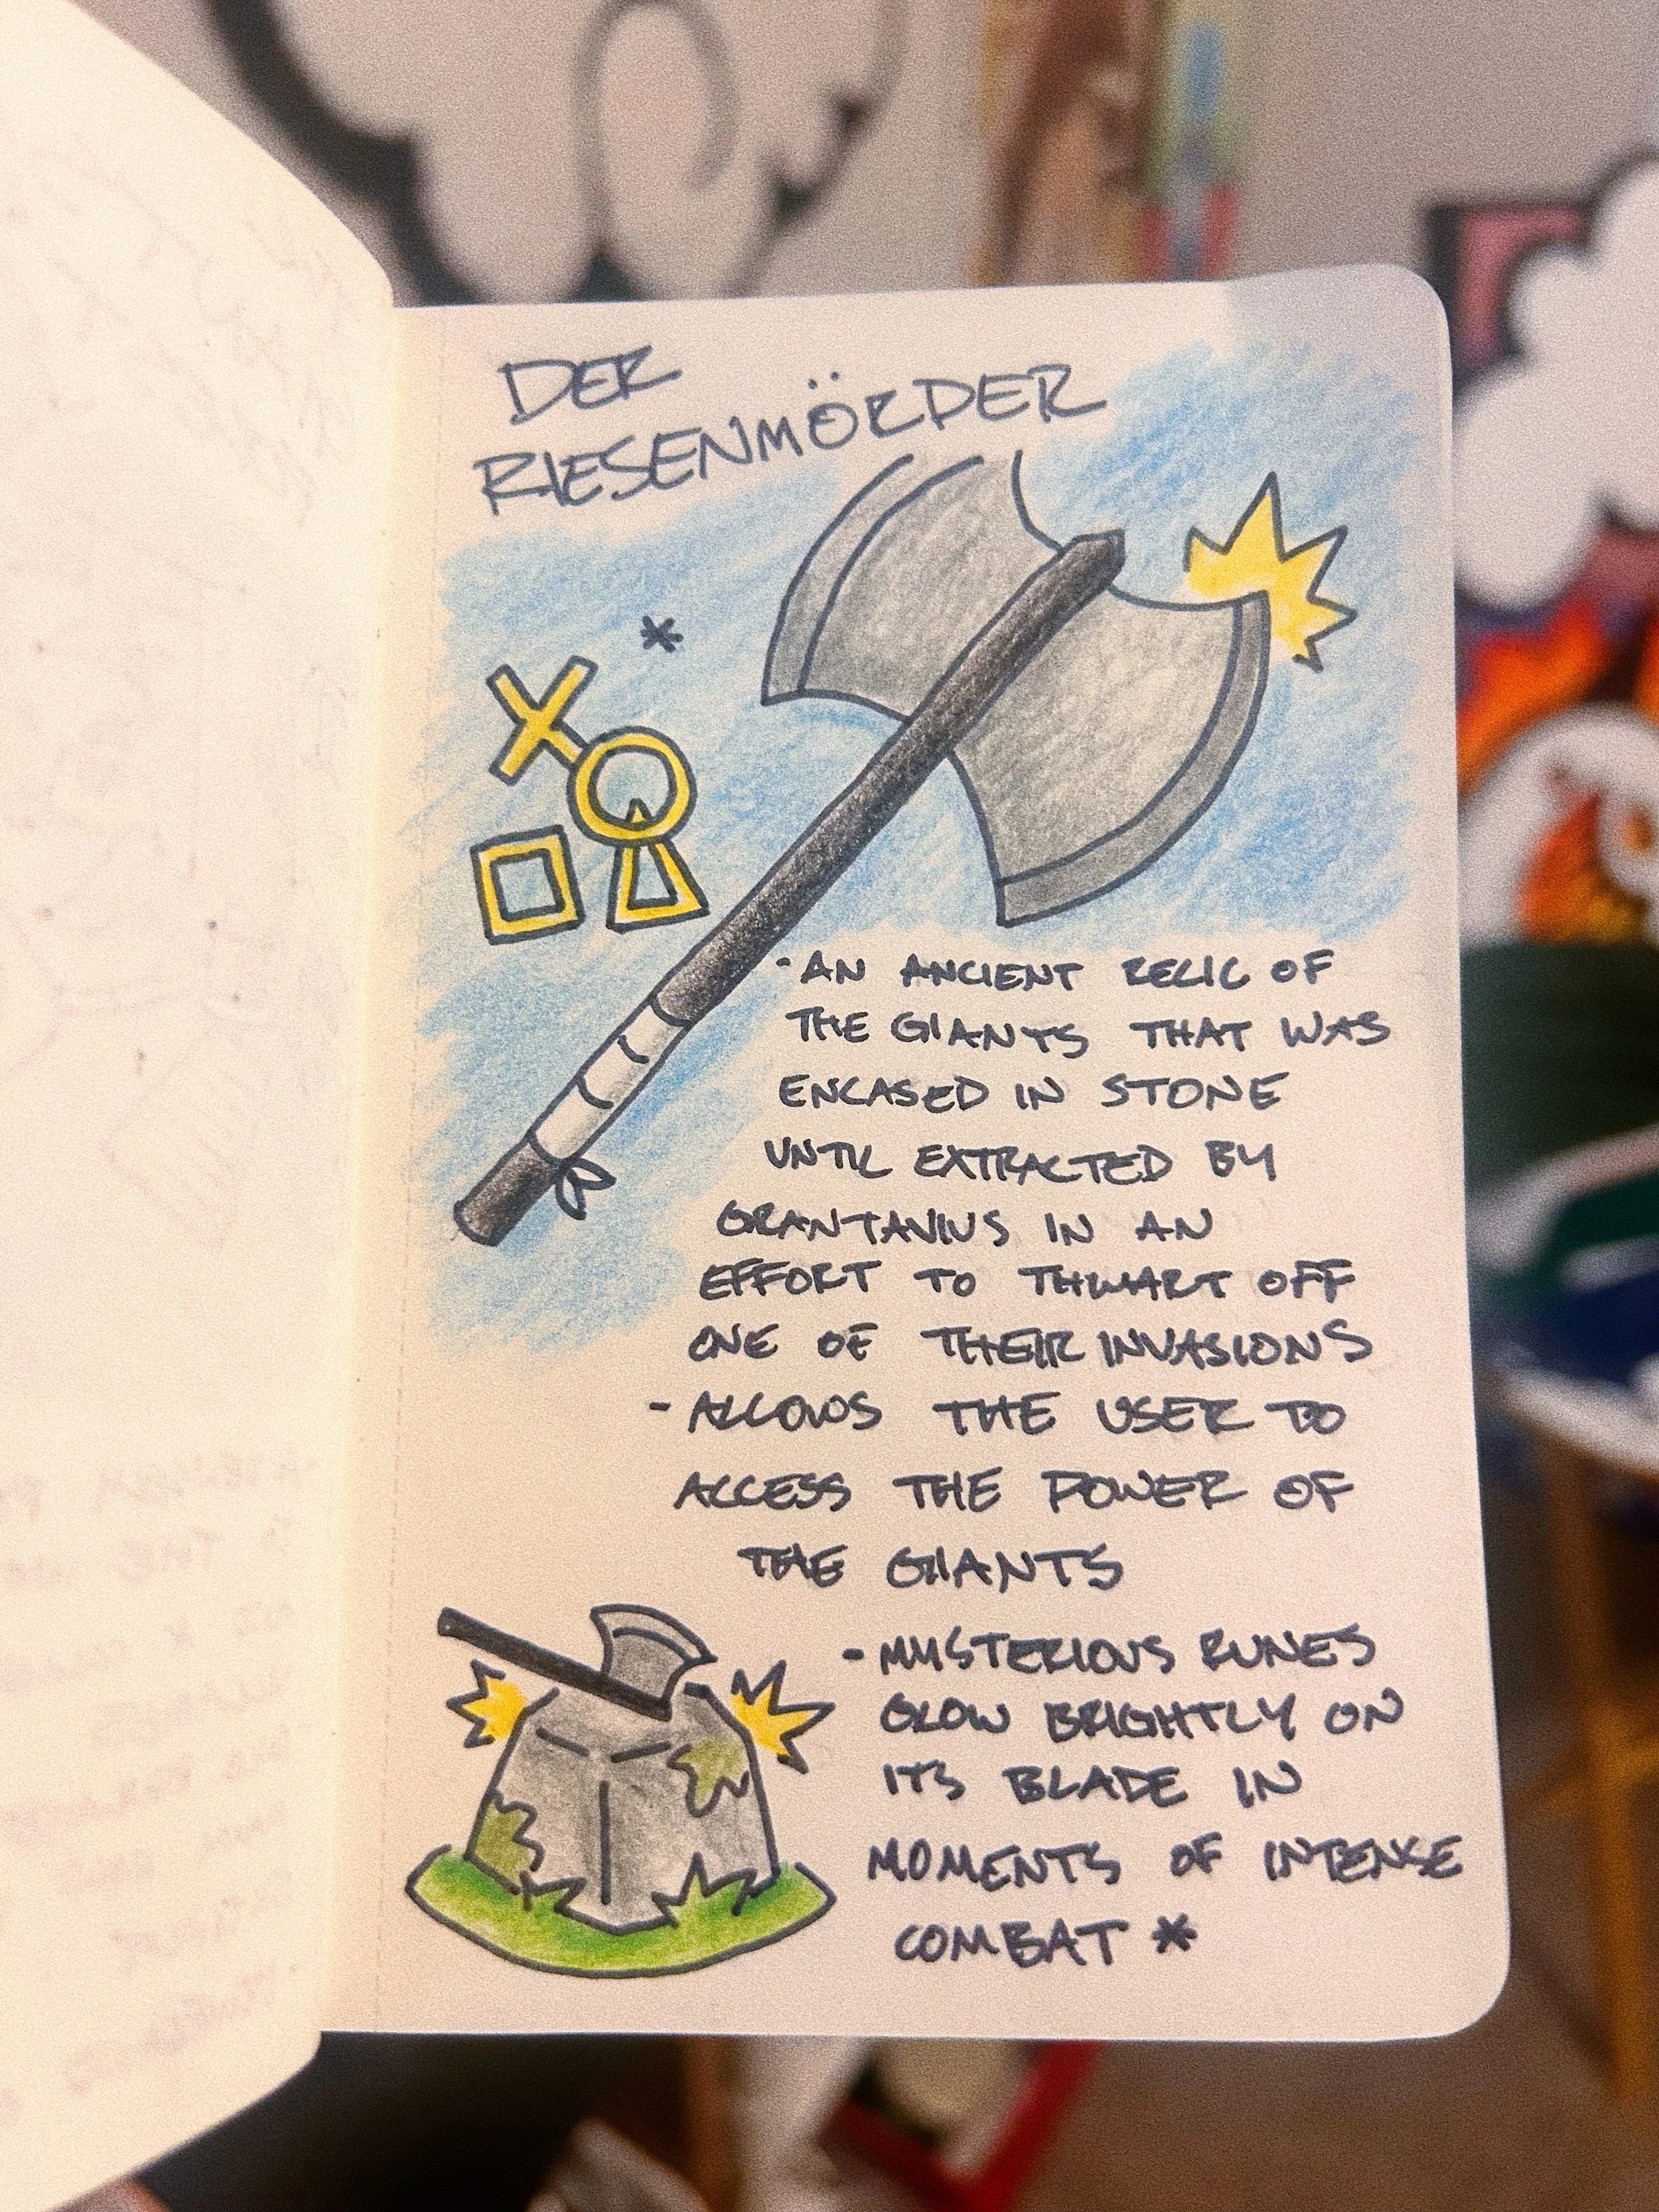 DER
RIESENMÖRDER
*
- AN ANCIENT RELIC OF
THE GIANTS THAT WAS
ENCASED IN STONE
UNTIL EXTRACTED BY
GRANTANIUS IN AN
EFFORT TO THWART OFF
ONE OF THEIR INVASIONS
- ALLOWS THE USER TO
ACCESS THE POWER OF
THE GIANTS
- MYSTERIOUS RUNES
GLOW BRIGHTLY ON
ITS BLADE IN
MOMENTS OF INTENSE
COMBAT *